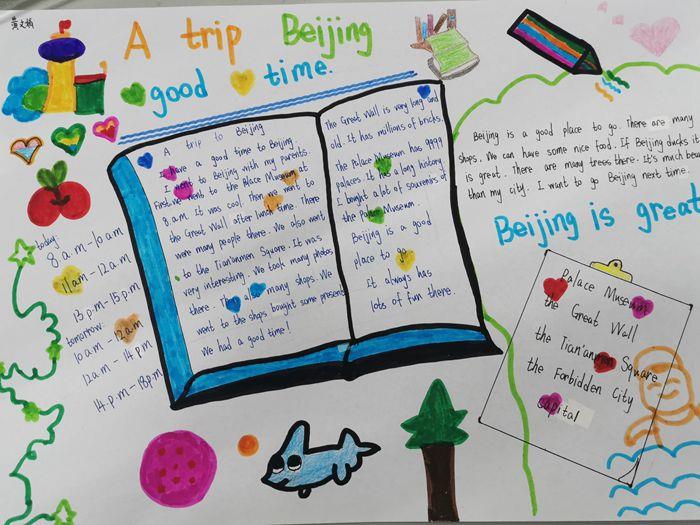 A trip Beijing
good time.
A trip to Beijing
I have a good time to Beijing.
I went to Beijing with my parents.
First we went to the Place Museum
8 a.m. It was cool. Then we went to
the Great Wall after lunch time. There
were many people there. We also went
to the Tian'anmen Square. It was
very interesting. We took many photos
there. The also many shops. We
went to the shops bought some presents
We had a good time!
The Great Wall is very long and
old. It has millions of bricks.
The Palace Museum has 9999
palaces. It has a long history
I bought a lot of souvenirs of
the Palace Museum.
Beijing is a good
place to go
It always has
lots of fun there.
Beijing is a good place to go. There are many
shops. We can have some nice food. If Beijing ducks it
is great. There are many trees there. It's much better
than my city. I want to go Beijing next time.
Beijing is great
today:
8 am-10 am
11 am-12 am
13 p.m-15 p.m
tomorrow:
10 am-12 am
12 am-14 pm
14.p.m-18p.m
Palace Museum
the Great Wall
the Tian'anmen Square
the Forbidden City
capital